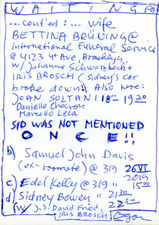 WAITING
...cont'ed: ... wife
BETTINA BRÜNING @
International Funeral Service
@ 4123 4th Ave, Brooklyn,
w/ Johanne Schwarzbeck +
IRIS BROSCH (Sidney's car
broke down). Also note:
JOAN SOLTANI 18:00 19:20
Danielle Chocron
Marcello Lela
SID WAS NOT MENTIONED
ONCE!!
b) Samuel John Davis
(ex-roomate) @ 319 26 VI
c) Edel Kelly @ 319 2019
d) Sidney Bowen
(w/ J.S. David Fried, 22:00
IRIS BROSCH)